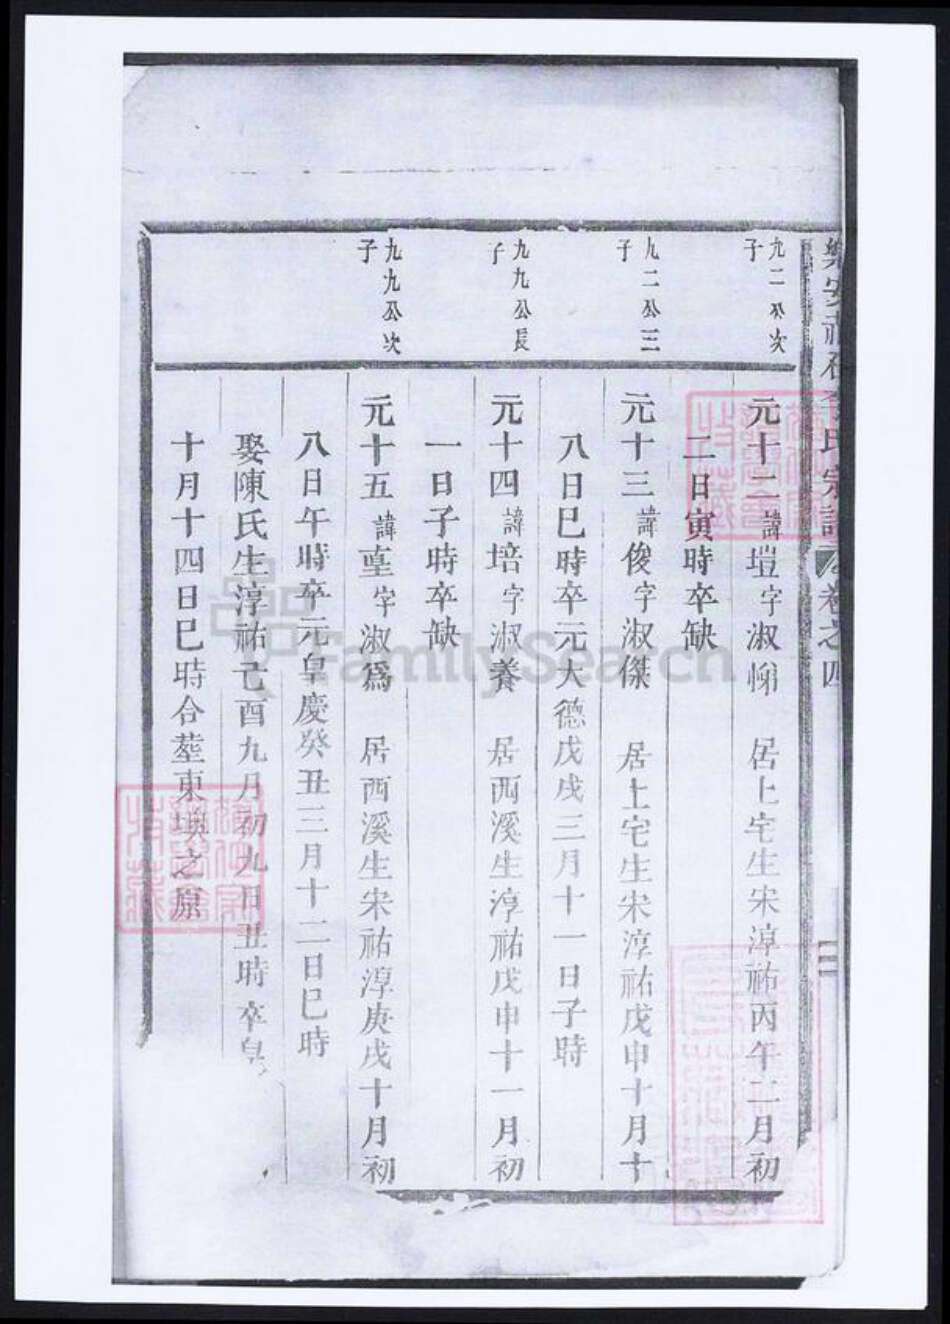 樂安
氏宗譜
卷之四
二
九二公次
子
元十二諱塏字淑悌 居上宅生宋淳祐丙午二月初
二日寅時卒缺
九二公三
子
元十三諱俊字淑傑 居上宅生宋淳祐戊申十月十
八日巳時卒元大德戊戌三月十一日子時
九九公長
子
元十四諱培字淑養 居西溪生淳祐戊申十一月初
一日子時卒缺
九九公次
子
元十五諱堊字淑爲 居西溪生宋祐淳庚戌十月初
八日午時卒元皇慶癸丑三月十二日巳時
娶陳氏生淳祐己酉九月初九日丑時卒皇
十月十四日巳時合塟東塽之原
FamilySearch